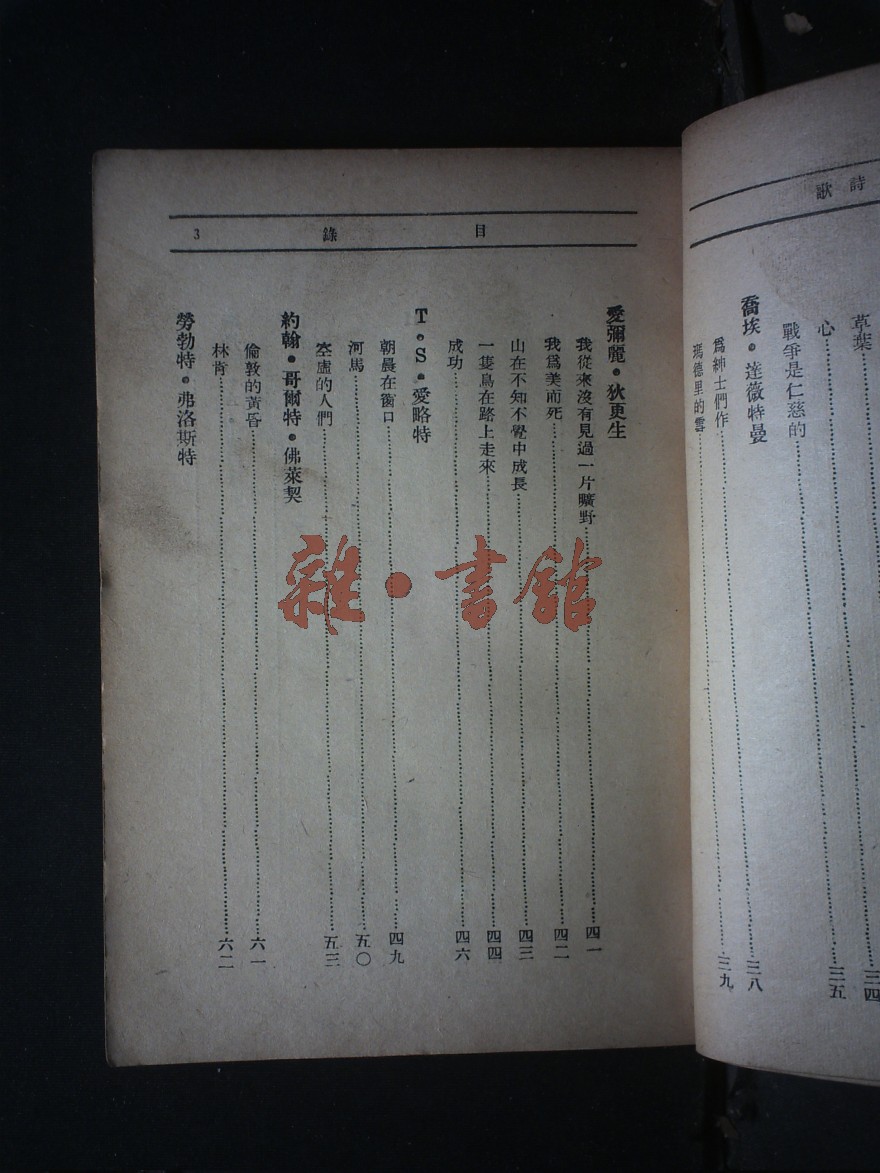 詩歌
草葉……三四
心……三五
戰爭是仁慈的
喬埃・達薇特曼
爲紳士們作……三八
瑪德里的雪……三九
目錄 3
愛彌麗・狄更生
我從來沒有見過一片曠野……四一
我爲美而死……四二
山在不知不覺中成長……四三
一隻鳥在路上走來……四四
成功……四六
T・S・愛略特
朝晨在窗口……四九
河馬……五〇
空虛的人們……五三
約翰・哥爾特・佛萊契
倫敦的黃昏……六一
林肯……六二
勞勃特・弗洛斯特
雜・書館